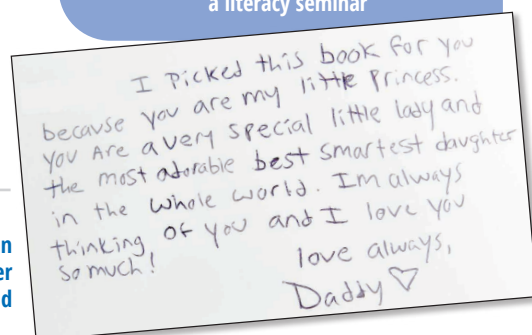 a literacy seminar
I Picked this book for you
because you are my little Princess.
you Are a very special little lady and
the most adorable best smartest daughter
in the whole world. Im always
thinking of you and I love you
so much!
love always,
Daddy ♡
n
er
d